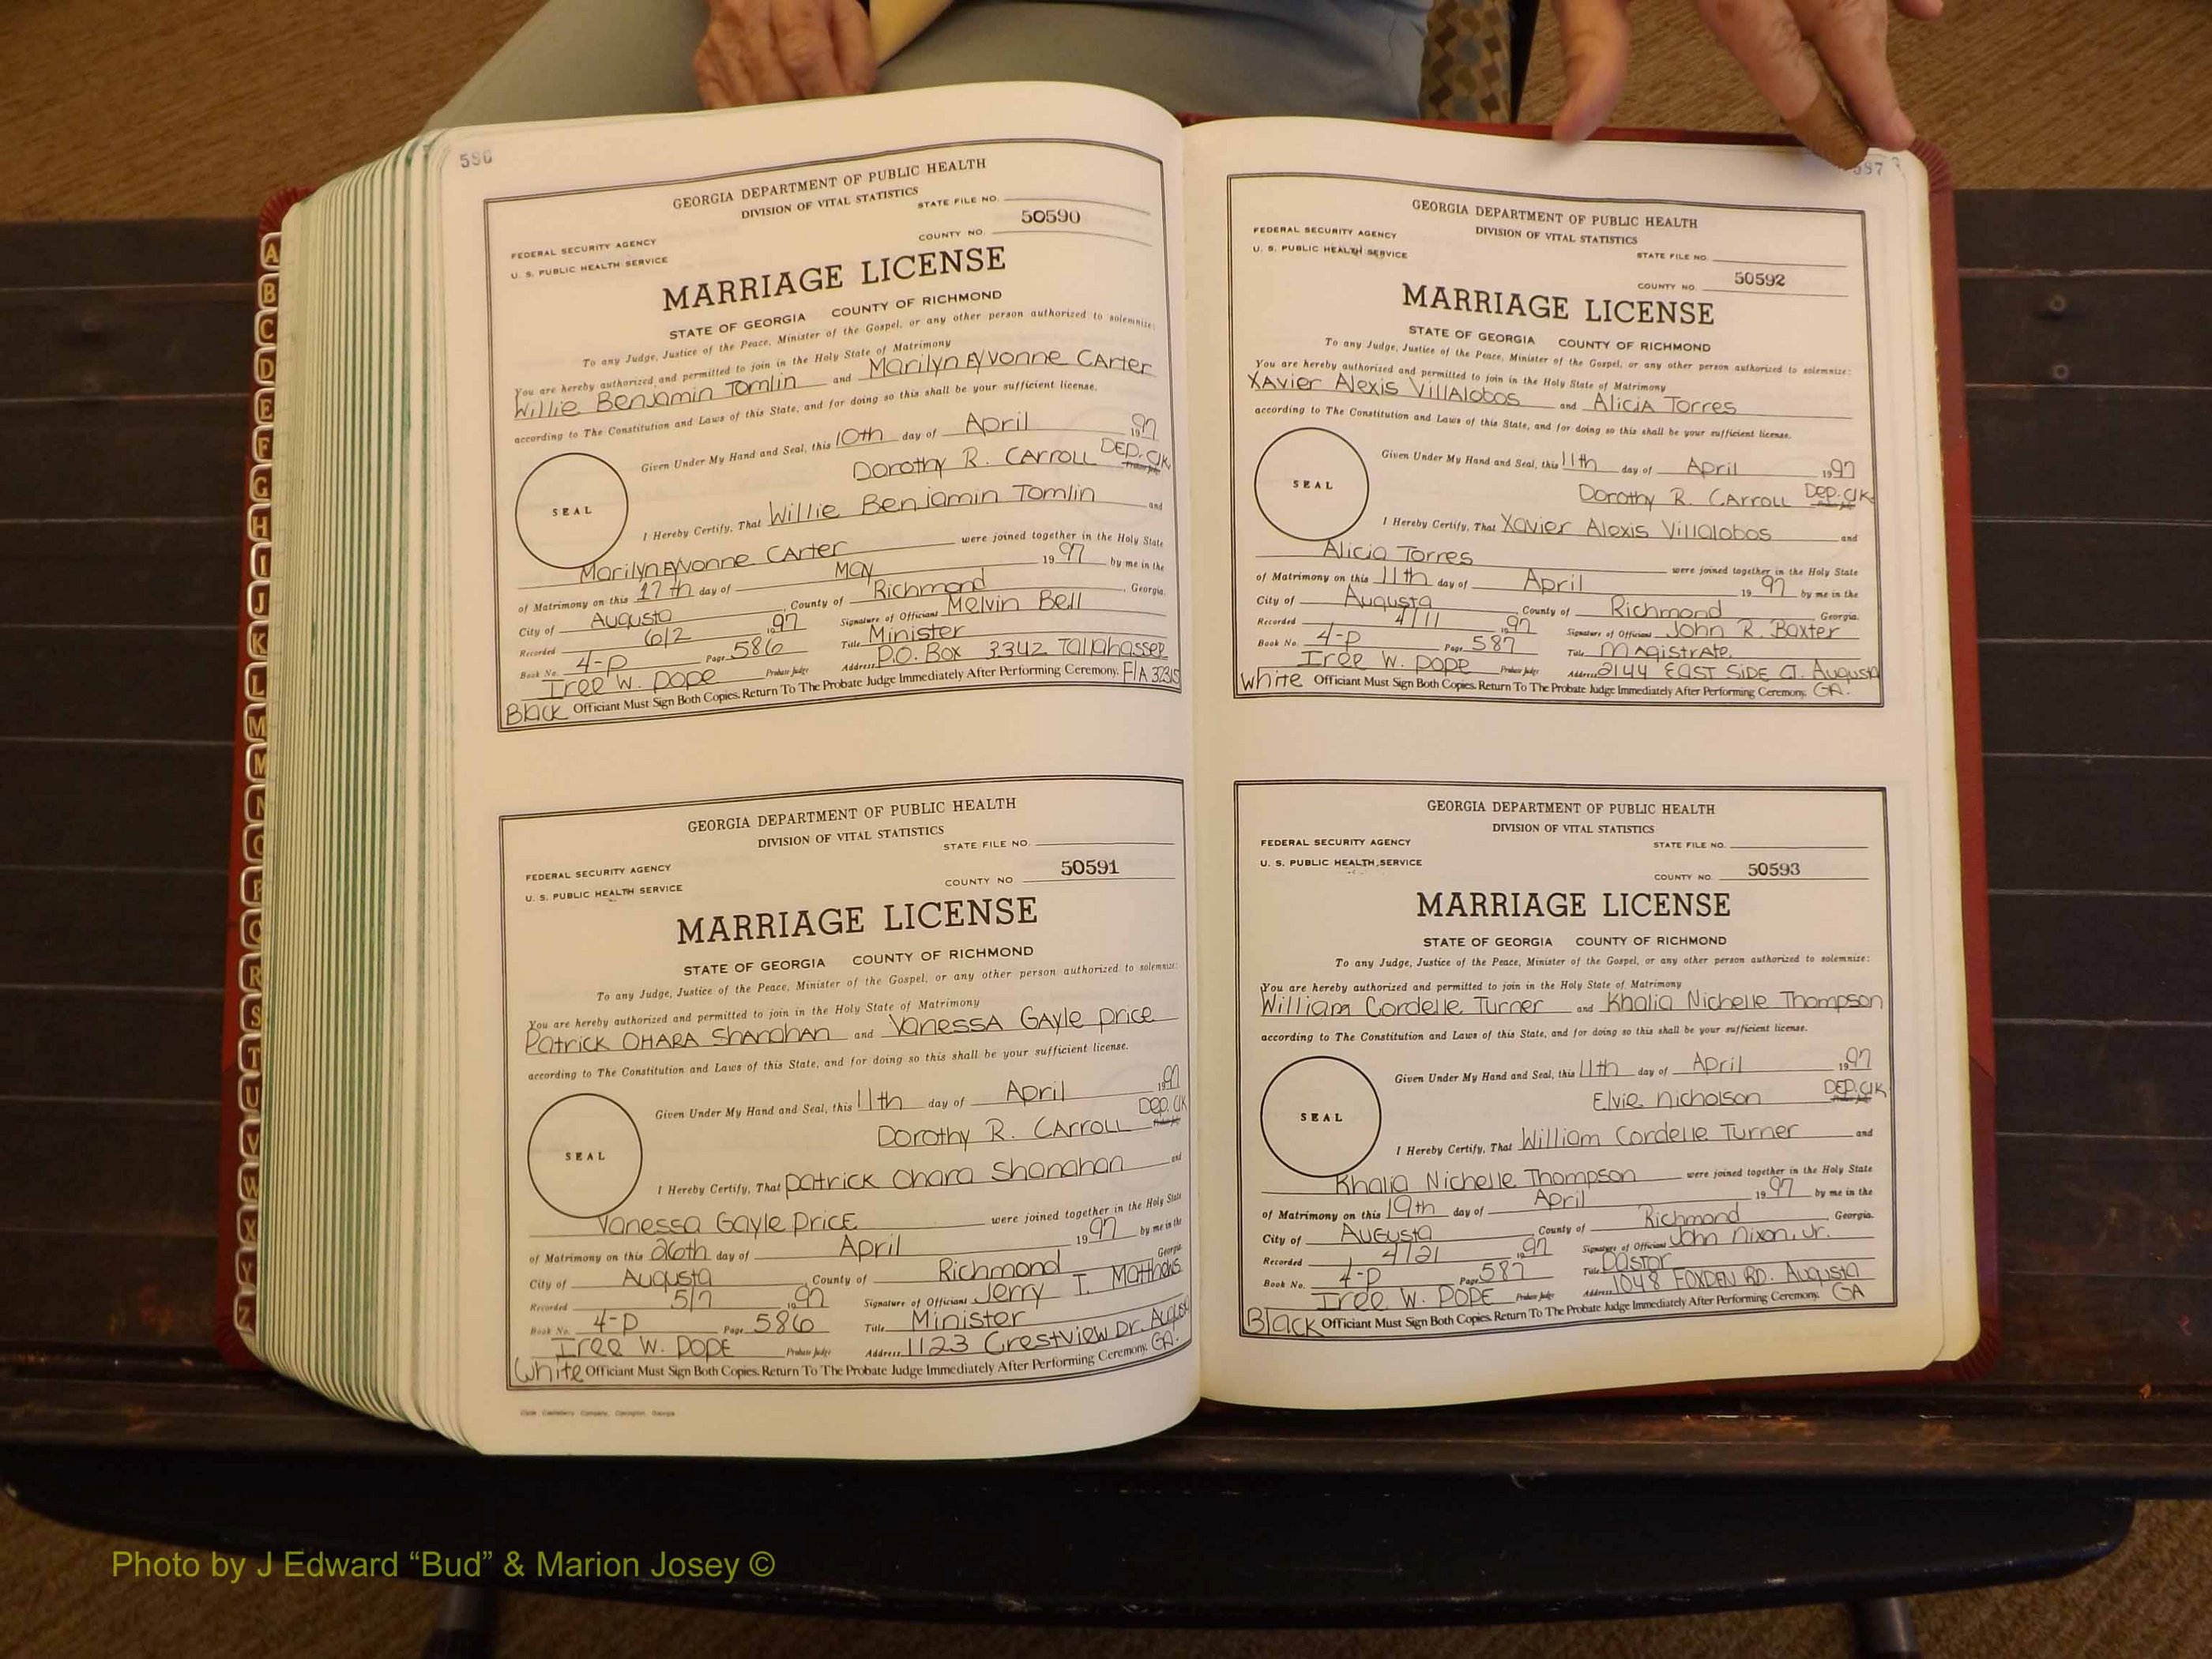 586
GEORGIA DEPARTMENT OF PUBLIC HEALTH
DIVISION OF VITAL STATISTICS
STATE FILE NO.
FEDERAL SECURITY AGENCY
U. S. PUBLIC HEALTH SERVICE
COUNTY NO. 50590
MARRIAGE LICENSE
STATE OF GEORGIA COUNTY OF RICHMOND
To any Judge, Justice of the Peace, Minister of the Gospel, or any other person authorized to solemnize:
You are hereby authorized and permitted to join in the Holy State of Matrimony
Willie Benjamin Tomlin and Marilyn Eyvonne CArter
according to The Constitution and Laws of this State, and for doing so this shall be your sufficient license.
Given Under My Hand and Seal, this 10th day of April 1997
Dorothy R. CARROLL DEP. Clk
SEAL
I Hereby Certify, That Willie Benjamin Tomlin and
Marilyn Eyvonne CArter were joined together in the Holy State
of Matrimony on this 17th day of May 1997 by me in the
City of Augusta, County of Richmond, Georgia.
Recorded 6/2 1997 Signature of Officiant Melvin Bell
Book No. 4-P Page 586 Title Minister
Iree W. Pope Probate Judge Address P.O. Box 3342 Tallahassee
Black Officiant Must Sign Both Copies. Return To The Probate Judge Immediately After Performing Ceremony. FlA 32315
GEORGIA DEPARTMENT OF PUBLIC HEALTH
DIVISION OF VITAL STATISTICS
STATE FILE NO.
FEDERAL SECURITY AGENCY
U. S. PUBLIC HEALTH SERVICE
COUNTY NO. 50591
MARRIAGE LICENSE
STATE OF GEORGIA COUNTY OF RICHMOND
To any Judge, Justice of the Peace, Minister of the Gospel, or any other person authorized to solemnize:
You are hereby authorized and permitted to join in the Holy State of Matrimony
Patrick OHARA Shanahan and VanessA GAyle price
according to The Constitution and Laws of this State, and for doing so this shall be your sufficient license.
Given Under My Hand and Seal, this 11th day of April 1997
Dorothy R. CARROLL Dep. Clk
SEAL
I Hereby Certify, That patrick Ohara Shanahan and
Vanessa Gayle pricE were joined together in the Holy State
of Matrimony on this 26th day of April 1997 by me in the
City of Augusta, County of Richmond Georgia
Recorded 5/7 1997 Signature of Officiant Jerry I. Matthews
Book No. 4-P Page 586 Title Minister
Iree W. POPE Probate Judge Address 1123 Crestview Dr.
White Officiant Must Sign Both Copies. Return To The Probate Judge Immediately After Performing Ceremony. GA.
587
GEORGIA DEPARTMENT OF PUBLIC HEALTH
DIVISION OF VITAL STATISTICS
FEDERAL SECURITY AGENCY
U. S. PUBLIC HEALTH SERVICE
STATE FILE NO.
COUNTY NO. 50592
MARRIAGE LICENSE
STATE OF GEORGIA COUNTY OF RICHMOND
To any Judge, Justice of the Peace, Minister of the Gospel, or any other person authorized to solemnize:
You are hereby authorized and permitted to join in the Holy State of Matrimony
XAvier Alexis VillAlobos and AliciA Torres
according to The Constitution and Laws of this State, and for doing so this shall be your sufficient license.
Given Under My Hand and Seal, this 11th day of April 1997
Dorothy R. CARROLL Dep. Clk
SEAL
I Hereby Certify, That Xavier Alexis Villalobos and
Alicia Torres were joined together in the Holy State
of Matrimony on this 11th day of April 1997 by me in the
City of Augusta, County of Richmond Georgia.
Recorded 4/11 1997 Signature of Officiant John R. Baxter
Book No. 4-P Page 587 Title MAgistrate
Iree W. Pope Probate Judge Address 2144 EAST SiDE Ct. Augusta
White Officiant Must Sign Both Copies. Return To The Probate Judge Immediately After Performing Ceremony. GA.
GEORGIA DEPARTMENT OF PUBLIC HEALTH
DIVISION OF VITAL STATISTICS
FEDERAL SECURITY AGENCY
U. S. PUBLIC HEALTH SERVICE
STATE FILE NO.
COUNTY NO. 50593
MARRIAGE LICENSE
STATE OF GEORGIA COUNTY OF RICHMOND
To any Judge, Justice of the Peace, Minister of the Gospel, or any other person authorized to solemnize:
You are hereby authorized and permitted to join in the Holy State of Matrimony
William Cordelle Turner and Khalia Nichelle Thompson
according to The Constitution and Laws of this State, and for doing so this shall be your sufficient license.
Given Under My Hand and Seal, this 11th day of April 1997
Elvie Nicholson DEP. Clk
SEAL
I Hereby Certify, That William Cordelle Turner and
Khalia Nichelle Thompson were joined together in the Holy State
of Matrimony on this 19th day of April 1997 by me in the
City of Augusta County of Richmond Georgia.
Recorded 4/21 1997 Signature of Officiant John Nixon, Jr.
Book No. 4-P Page 587 Title Pastor
Iree W. POPE Probate Judge Address 1048 FOXDEN RD. Augusta
Black Officiant Must Sign Both Copies. Return To The Probate Judge Immediately After Performing Ceremony. GA
A
B
C
D
E
F
G
H
I
J
K
L
M
M
N
O
P
Q
R
S
T
U
V
W
X
Y
Z
Photo by J Edward “Bud” & Marion Josey ©